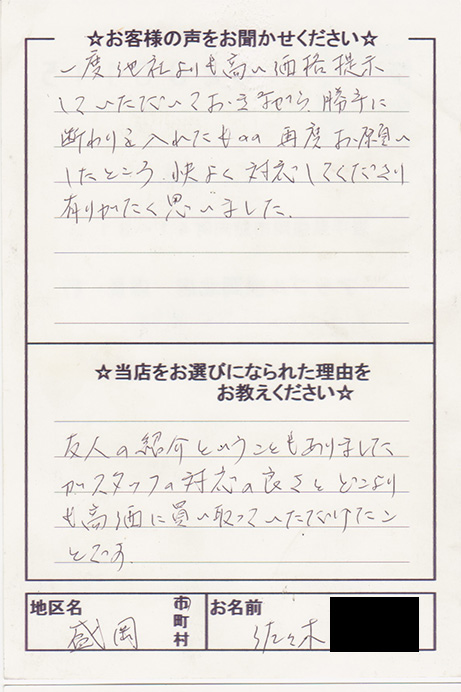 ☆お客様の声をお聞かせください☆
一度他社よりも高い価格提示
していただいておきながら 勝手に
断わりを入れたものの 再度お願い
したところ 快よく対応してくださり
有りがたく思いました.
☆当店をお選びになられた理由を
お教えください☆
友人の紹介ということもありました
がスタッフの対応の良さと どこより
も高価に買い取っていただけたこ
とです.
地区名 盛岡 市町村 お名前 佐々木